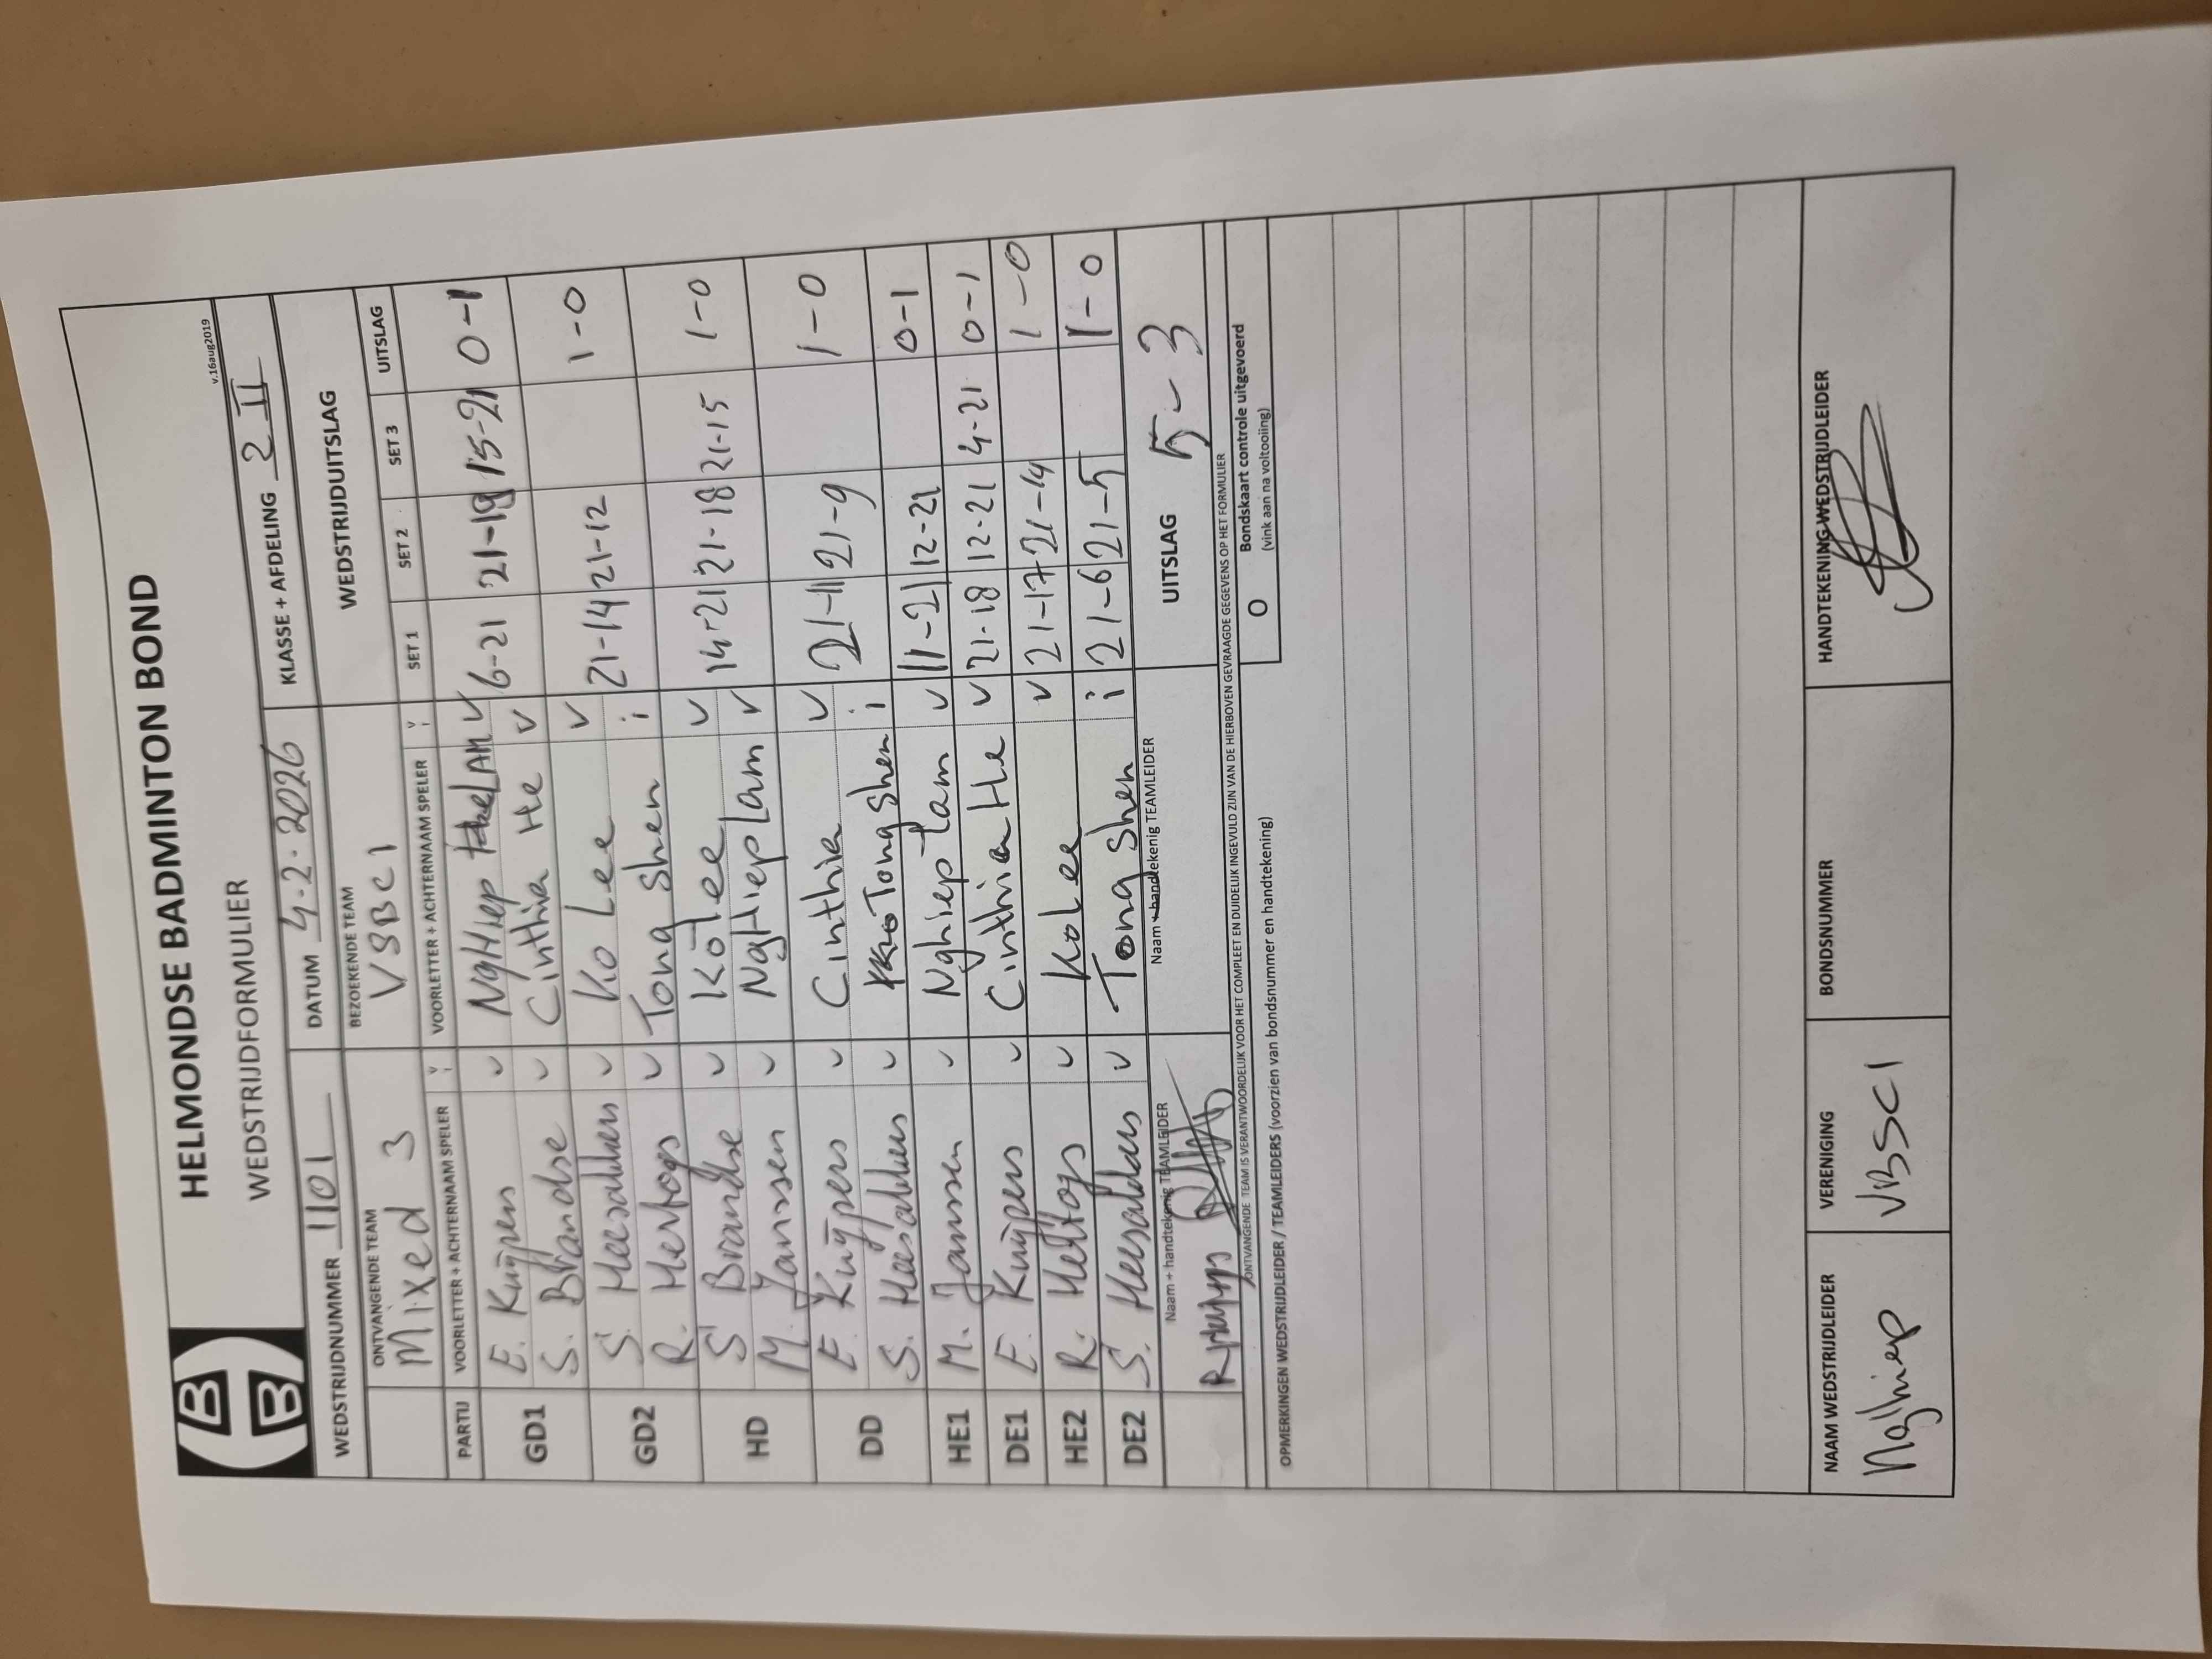 HELMONDSE BADMINTON BOND
WEDSTRIJDFORMULIER
v.16aug2019
WEDSTRIJDNUMMER 1101 DATUM 4-2-2026 KLASSE + AFDELING 2 II
ONTVANGENDE TEAM BEZOEKENDE TEAM WEDSTRIJDUITSLAG
Mixed 3 VSBC1
PARTIJ VOORLETTER + ACHTERNAAM SPELER V I VOORLETTER + ACHTERNAAM SPELER V I SET 1 SET 2 SET 3 UITSLAG
GD1 E. Kuijpers v Nghiep LAM v 6-21 21-18 15-21 0-1
S. Brandse v Cinthia He v
GD2 S. Heesakkers v Ko Lee v 21-14 21-12 1-0
R. Hertogs v Tong Shen i
HD S Brandse v Ko Lee v 14-21 21-18 21-15 1-0
M. Janssen v Nghiep Lam v
DD E. Kuijpers v Cinthia v 21-11 21-9 1-0
S. Heesakkers v Tong Shen i
HE1 M. Janssen v Nghiep Lam v 11-21 12-21 0-1
DE1 E. Kuijpers v Cinthia He v 21-18 12-21 4-21 0-1
HE2 R. Hertogs v Ko Lee v 21-17 21-14 1-0
DE2 S. Heesakkers v Tong Shen i 21-6 21-5 1-0
Naam + handtekenig TEAMLEIDER Naam + handtekenig TEAMLEIDER UITSLAG 5-3
ONTVANGENDE TEAM IS VERANTWOORDELIJK VOOR HET COMPLEET EN DUIDELIJK INGEVULD ZIJN VAN DE HIERBOVEN GEVRAAGDE GEGEVENS OP HET FORMULIER
OPMERKINGEN WEDSTRIJDLEIDER / TEAMLEIDERS (voorzien van bondsnummer en handtekening) O Bondskaart controle uitgevoerd
(vink aan na voltooiing)
NAAM WEDSTRIJDLEIDER VERENIGING BONDSNUMMER HANDTEKENING WEDSTRIJDLEIDER
Nghiep VBSC1